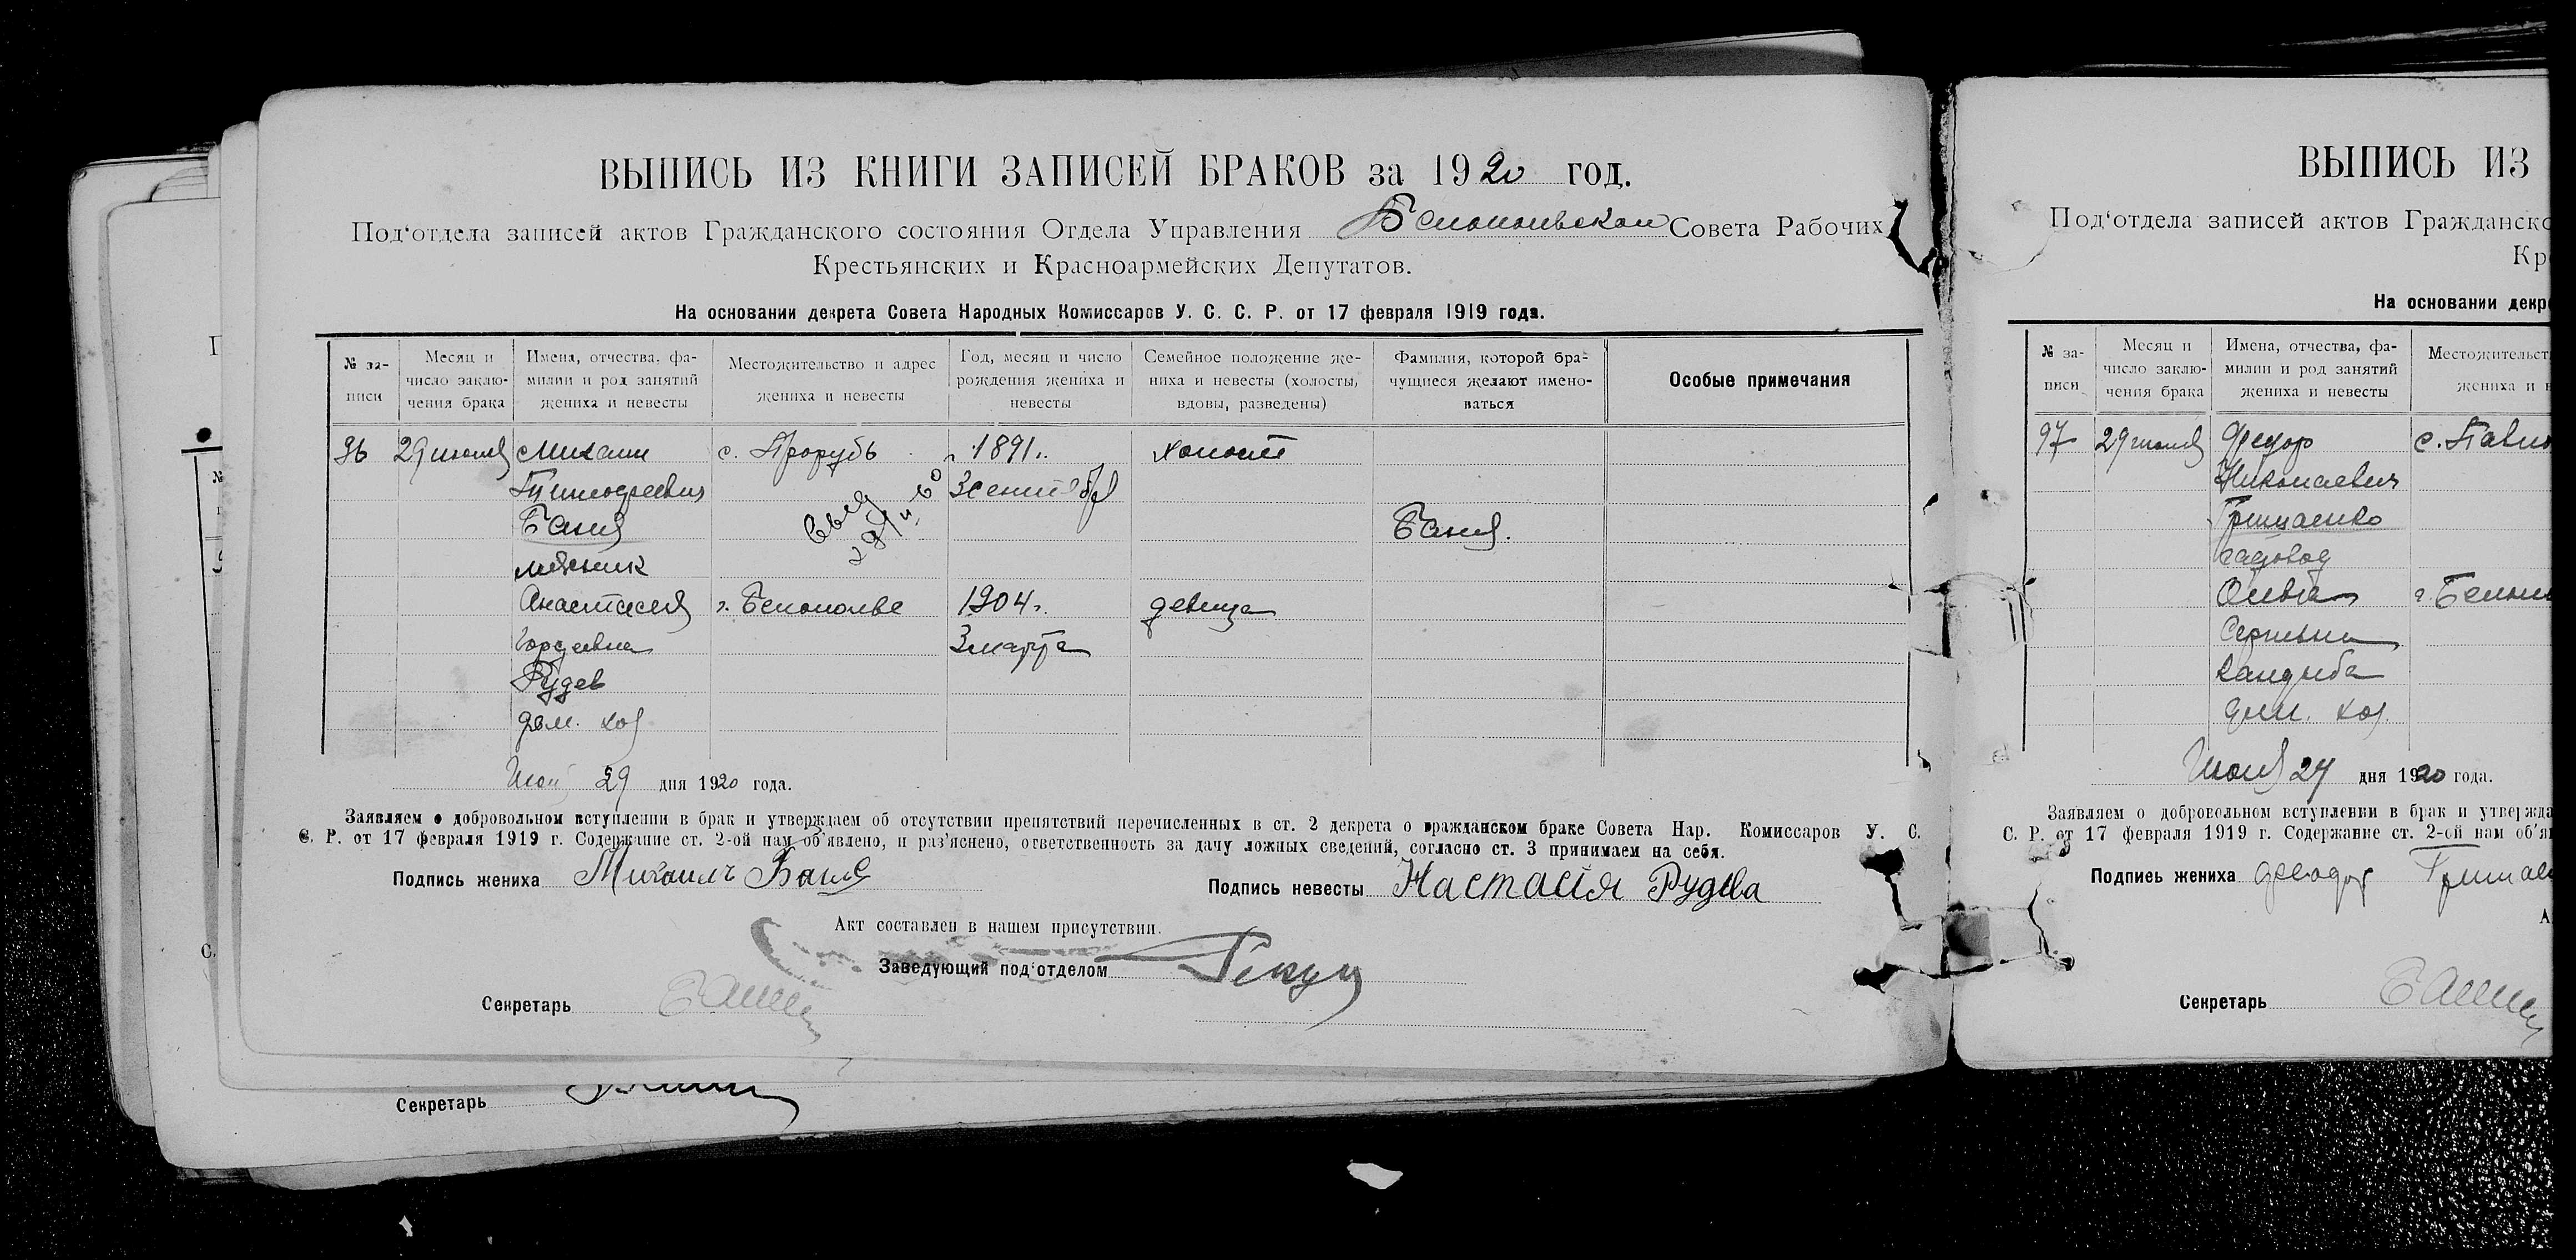 ВЫПИСЬ ИЗ КНИГИ ЗАПИСЕЙ БРАКОВ за 1920 год.
Под'отдела записей актов Гражданского состояния Отдела Управления Белопольскаго Совета Рабочих
Крестьянских и Красноармейских Депутатов.
На основании декрета Совета Народных Комиссаров У. С. С. Р. от 17 февраля 1919 года.
№ за-
писи
Месяц и
число заклю-
чения брака
Имена, отчества, фа-
милии и род занятий
жениха и невесты
Местожительство и адрес
жениха и невесты
Год, месяц и число
рождения жениха и
невесты
Семейное положение же-
ниха и невесты (холосты,
вдовы, разведены)
Фамилия, которой бра-
чущиеся желают имено-
ваться
Особые примечания
96 29 июля Михаил с. Прорубь 1891 г. холост
Тимофеевич 3 сентября
Баня Баня.
Анастасия г. Белополье 1904 г. девица
Гордеевна 3 марта
Рудев
дом. хоз
29 дня 1920 года.
Заявляем о добровольном вступлении в брак и утверждаем об отсутствии препятствий перечисленных в ст. 2 декрета о гражданском браке Совета Нар. Комиссаров У. С.
С. Р. от 17 февраля 1919 г. Содержание ст. 2-ой нам об'явлено, и раз'яснено, ответственность за дачу ложных сведений, согласно ст. 3 принимаем на себя.
Подпись жениха Михаилъ Баня
Подпись невесты Настасія Рудева
Акт составлен в нашем присутствии.
Заведующий под'отделом
Секретарь
Секретарь
ВЫПИСЬ ИЗ
Под'отдела записей актов Гражданско
Кр
На основании декре
№ за-
писи
Месяц и
число заклю-
чения брака
Имена, отчества, фа-
милии и род занятий
жениха и невесты
Местожительст
жениха и н
97 29 июля Федор с. Павло
Николаевич
Грицаенко
садовод
Ольга г. Белопо
Сергеевна
Кандыба
дом. хоз.
Июля 29 дня 1920 года.
Заявляем о добровольном вступлении в брак и утвержда
С. Р. от 17 февраля 1919 г. Содержание ст. 2-ой нам об'я
Подпись жениха Феодор
А
Секретарь